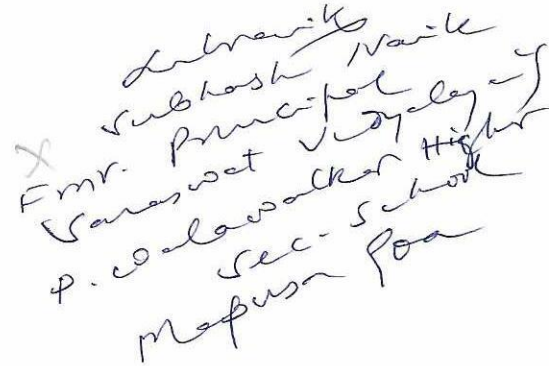 Subhash Naik
Fmr. Principal
Saraswat Vidyalaya's
P. Walawalkar Higher
Sec. School
Mapusa Goa